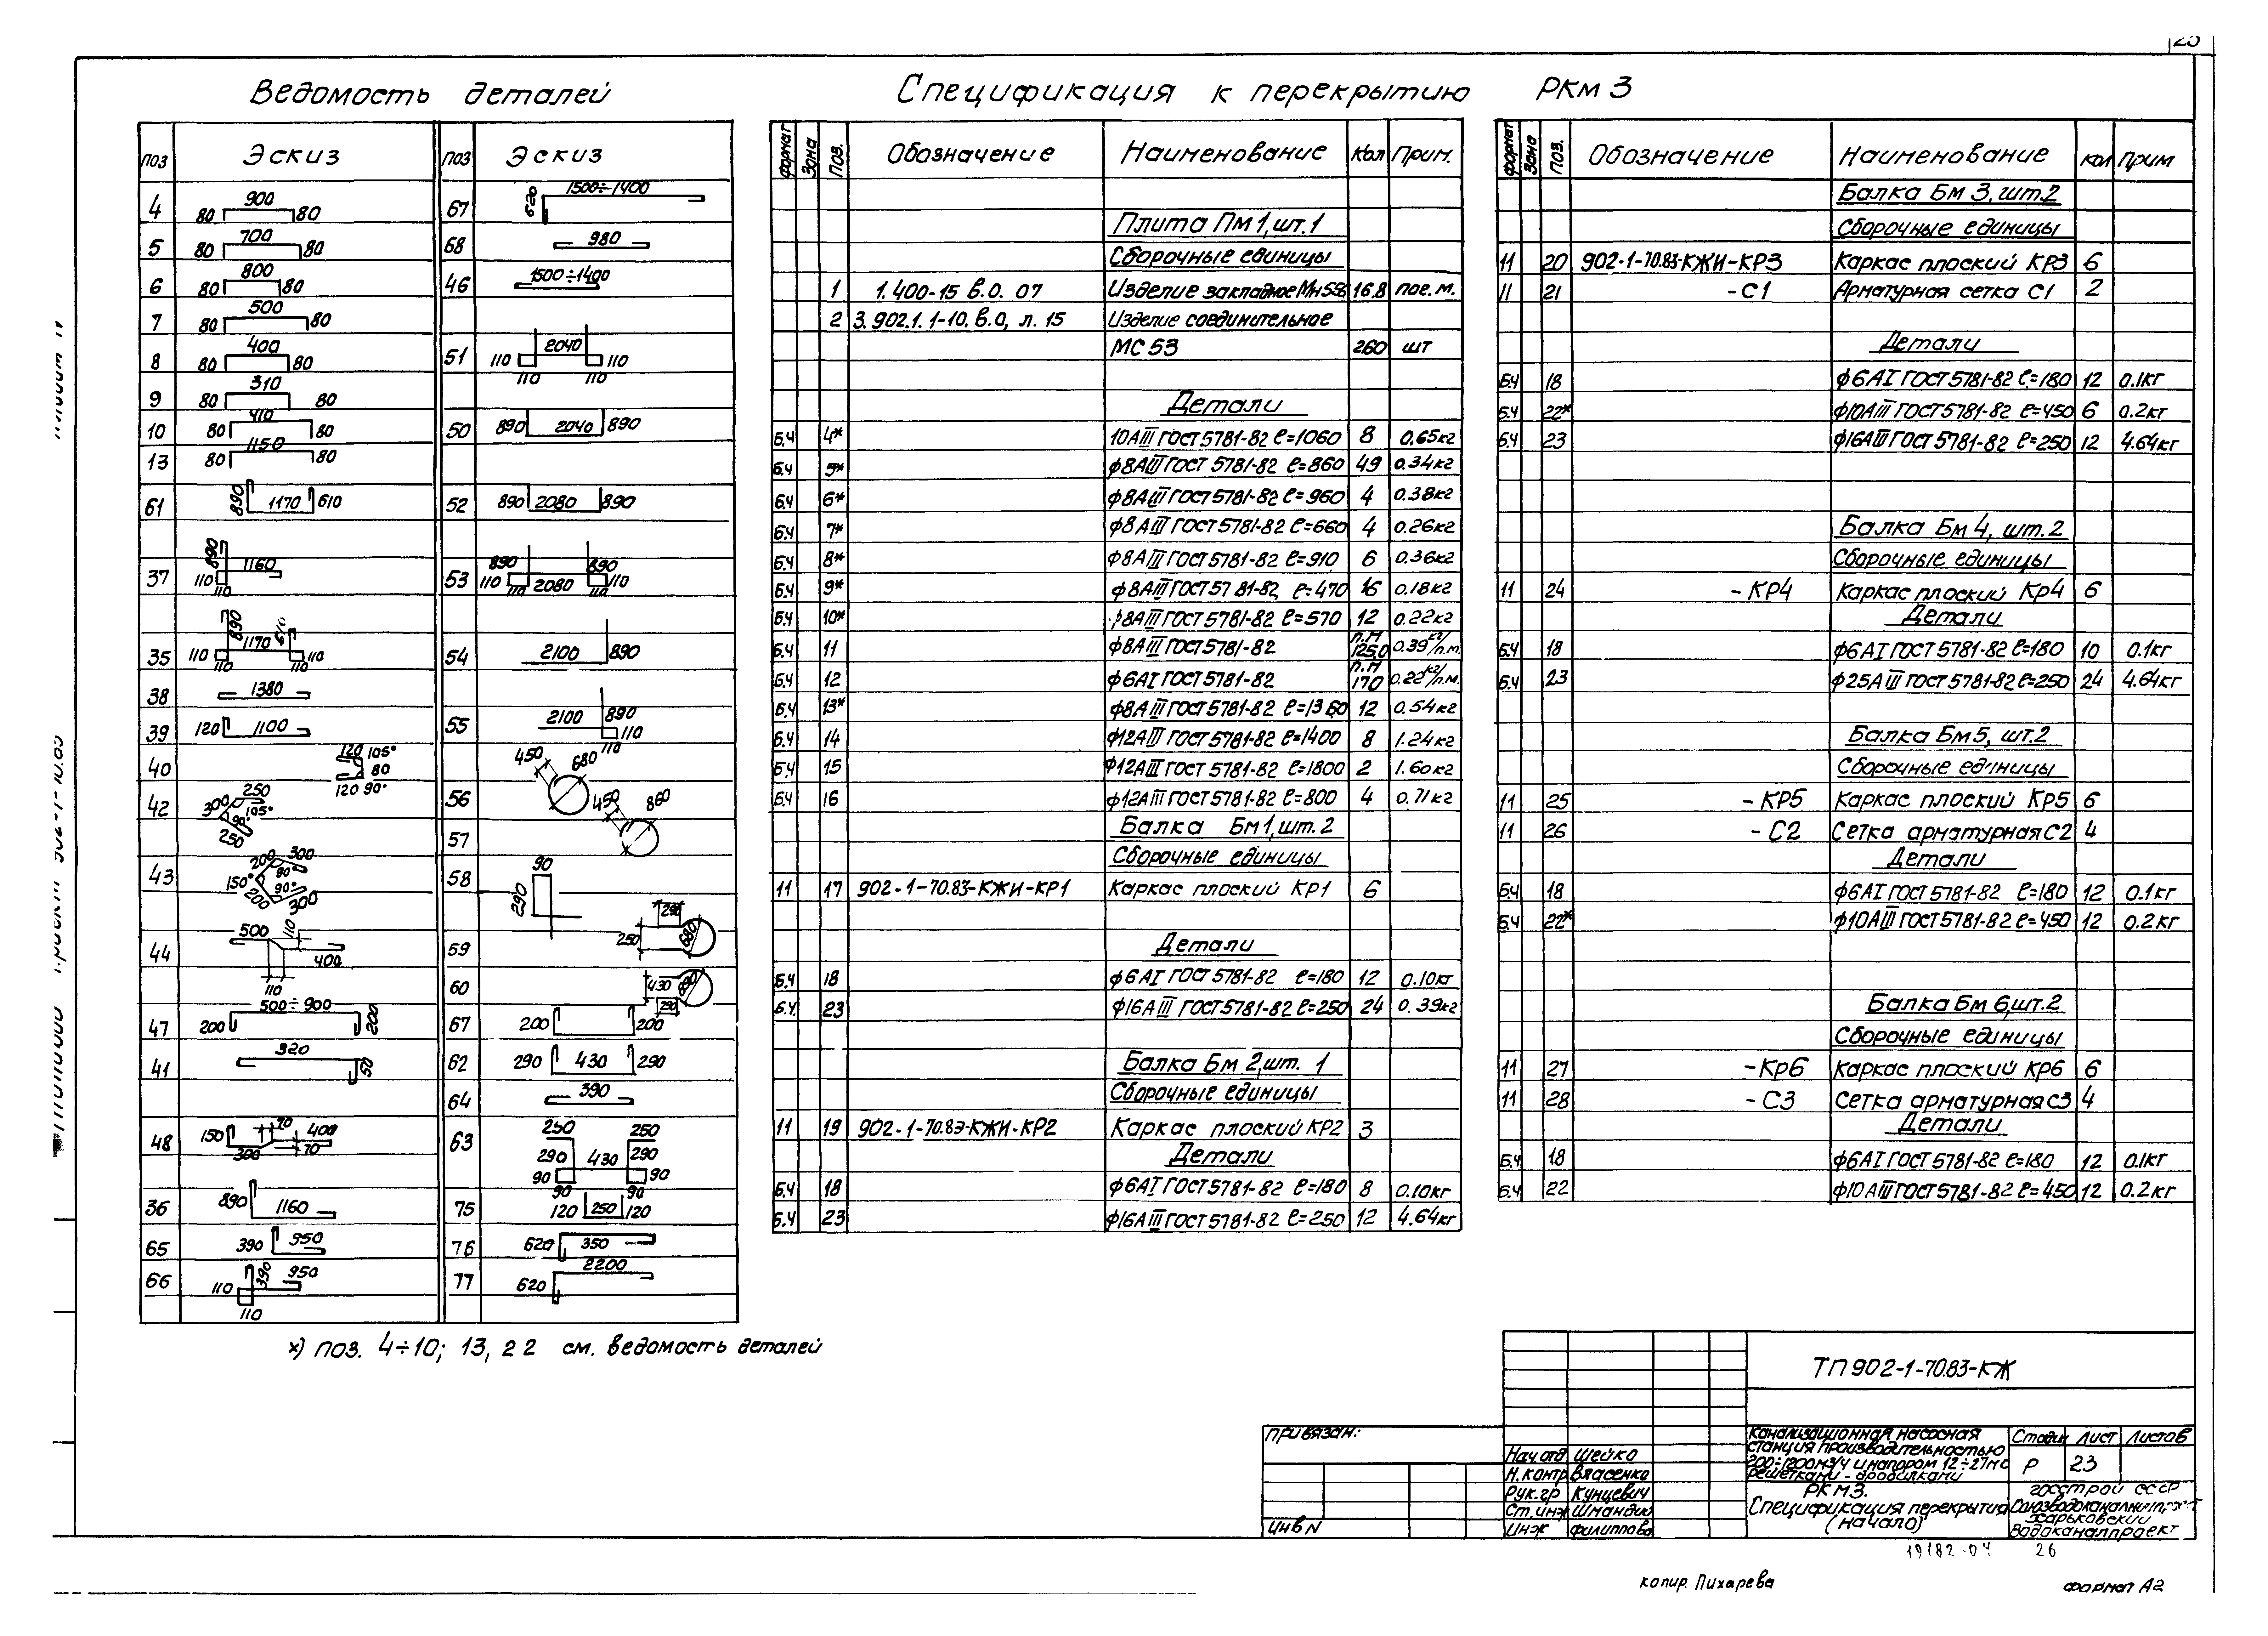 Ведомость деталей
поз Эскиз поз Эскиз
4 900 80 80
5 700 80 80
6 800 80 80
7 500 80 80
8 400 80 80
9 310 80 80
10 410 80 80
13 1150 80 80
61 890 1170 610
37 890 1160 110 110
35 890 1170 610 110 110 110 110
38 1380
39 120 1100
40 120 105° 80 120 90°
42 300 250 105° 90° 250
43 200 300 90° 150° 90° 200 300
44 500 110 400 110
47 500÷900 200 200
41 320 50
48 150 70 400 300 70
36 890 1160
65 390 950
66 390 950 110 110
67 1500÷1400 620
68 980
46 1500÷1400
51 2040 110 110 110 110
50 890 2040 890
52 890 2080 890
53 890 890 110 2080 110 110 110
54 2100 890
55 2100 890 110 110
56 450 680
57 450 860
58 90 290
59 290 250 680
60 430 290
67 200 200
62 290 430 290
64 390
63 250 250 290 430 290 90 90 90 90
75 120 250 120
76 620 350
77 2200 620
х) поз. 4÷10; 13, 22 см. ведомость деталей
Спецификация к перекрытию РКм 3
формат Зона Поз. Обозначение Наименование Кол Прим.
Плита Пм 1, шт. 1
Сборочные единицы
1 1.400-15 в.0. 07 Изделие закладное 16.8 пог. м.
2 3.902.1.1-10. в.0, л. 15 Изделие соединительное
МС 53 260 шт
Детали
Б.Ч 4* 10АIII ГОСТ 5781-82 ℓ=1060 8 0.65кг
Б.Ч 5* ф8АIII ГОСТ 5781-82 ℓ=860 49 0.34кг
Б.Ч 6* ф8АIII ГОСТ 5781-82 ℓ=960 4 0.38кг
Б.Ч 7* ф8АIII ГОСТ 5781-82 ℓ=660 4 0.26кг
Б.Ч 8* ф8АIII ГОСТ 5781-82 ℓ=910 6 0.36кг
Б.Ч 9* ф8АIII ГОСТ 5781-82, ℓ=470 16 0.18кг
Б.Ч 10* ф8АIII ГОСТ 5781-82 ℓ=570 12 0.22кг
Б.Ч 11 ф8АIII ГОСТ 5781-82 п.м 125.0 0.39 кг/п.м.
Б.Ч 12 ф6АI ГОСТ 5781-82 п.м 170 0.22 кг/п.м.
Б.Ч 13* ф8АIII ГОСТ 5781-82 ℓ=1360 12 0.54кг
Б.Ч 14 ф12АIII ГОСТ 5781-82 ℓ=1400 8 1.24кг
Б.Ч 15 ф12АIII ГОСТ 5781-82 ℓ=1800 2 1.60кг
Б.Ч 16 ф12АIII ГОСТ 5781-82 ℓ=800 4 0.71кг
Балка Бм 1, шт. 2
Сборочные единицы
11 17 902-1-70.83-КЖИ-КР1 Каркас плоский КР1 6
Детали
Б.Ч 18 ф6АI ГОСТ 5781-82 ℓ=180 12 0.10кг
Б.Ч 23 ф16АIII ГОСТ 5781-82 ℓ=250 24 0.39кг
Балка Бм 2, шт. 1
Сборочные единицы
11 19 902-1-70.83-КЖИ-КР2 Каркас плоский КР2 3
Детали
Б.Ч 18 ф6АI ГОСТ 5781-82 ℓ=180 8 0.10кг
Б.Ч 23 ф16АIII ГОСТ 5781-82 ℓ=250 12 4.64кг
формат Зона Поз. Обозначение Наименование кол Прим
Балка Бм 3, шт. 2
Сборочные единицы
11 20 902-1-70.83-КЖИ-КР3 Каркас плоский КР3 6
11 21 -С1 Арматурная сетка С1 2
Детали
Б.Ч 18 ф6АI ГОСТ 5781-82 ℓ=180 12 0.1кг
Б.Ч 22* ф10АIII ГОСТ 5781-82 ℓ=450 6 0.2кг
Б.Ч 23 ф16АIII ГОСТ 5781-82 ℓ=250 12 4.64кг
Балка Бм 4, шт. 2
Сборочные единицы
11 24 -КР4 Каркас плоский Кр4 6
Детали
Б.Ч 18 ф6АI ГОСТ 5781-82 ℓ=180 10 0.1кг
Б.Ч 23 ф25АIII ГОСТ 5781-82 ℓ=250 24 4.64кг
Балка Бм 5, шт. 2
Сборочные единицы
11 25 -КР5 Каркас плоский Кр5 6
11 26 -С2 Сетка арматурная С2 4
Детали
Б.Ч 18 ф6АI ГОСТ 5781-82 ℓ=180 12 0.1кг
Б.Ч 22* ф10АIII ГОСТ 5781-82 ℓ=450 12 0.2кг
Балка Бм 6, шт. 2
Сборочные единицы
11 27 -Кр6 Каркас плоский Кр6 6
11 28 -С3 Сетка арматурная С3 4
Детали
Б.Ч 18 ф6АI ГОСТ 5781-82 ℓ=180 12 0.1кг
Б.Ч 22 ф10АIII ГОСТ 5781-82 ℓ=450 12 0.2кг
ТП 902-1-70.83-КЖ
Привязан:
Инв N
Нач. отд Шейко
Н. контр Власенко
Рук. гр Кунцевич
Ст. инж Шмандий
Инж Филиппова
Канализационная насосная
станция производительностью
200÷1200м3/ч и напором 12÷27м с
решетками-дробилками
РКМ3.
Спецификация перекрытия
(начало)
Стадия Лист Листов
Р 23
Госстрой СССР
Союзводоканалпроект
Харьковский
Водоканалпроект
19182-04 26
копир. Пихарева
формат А2